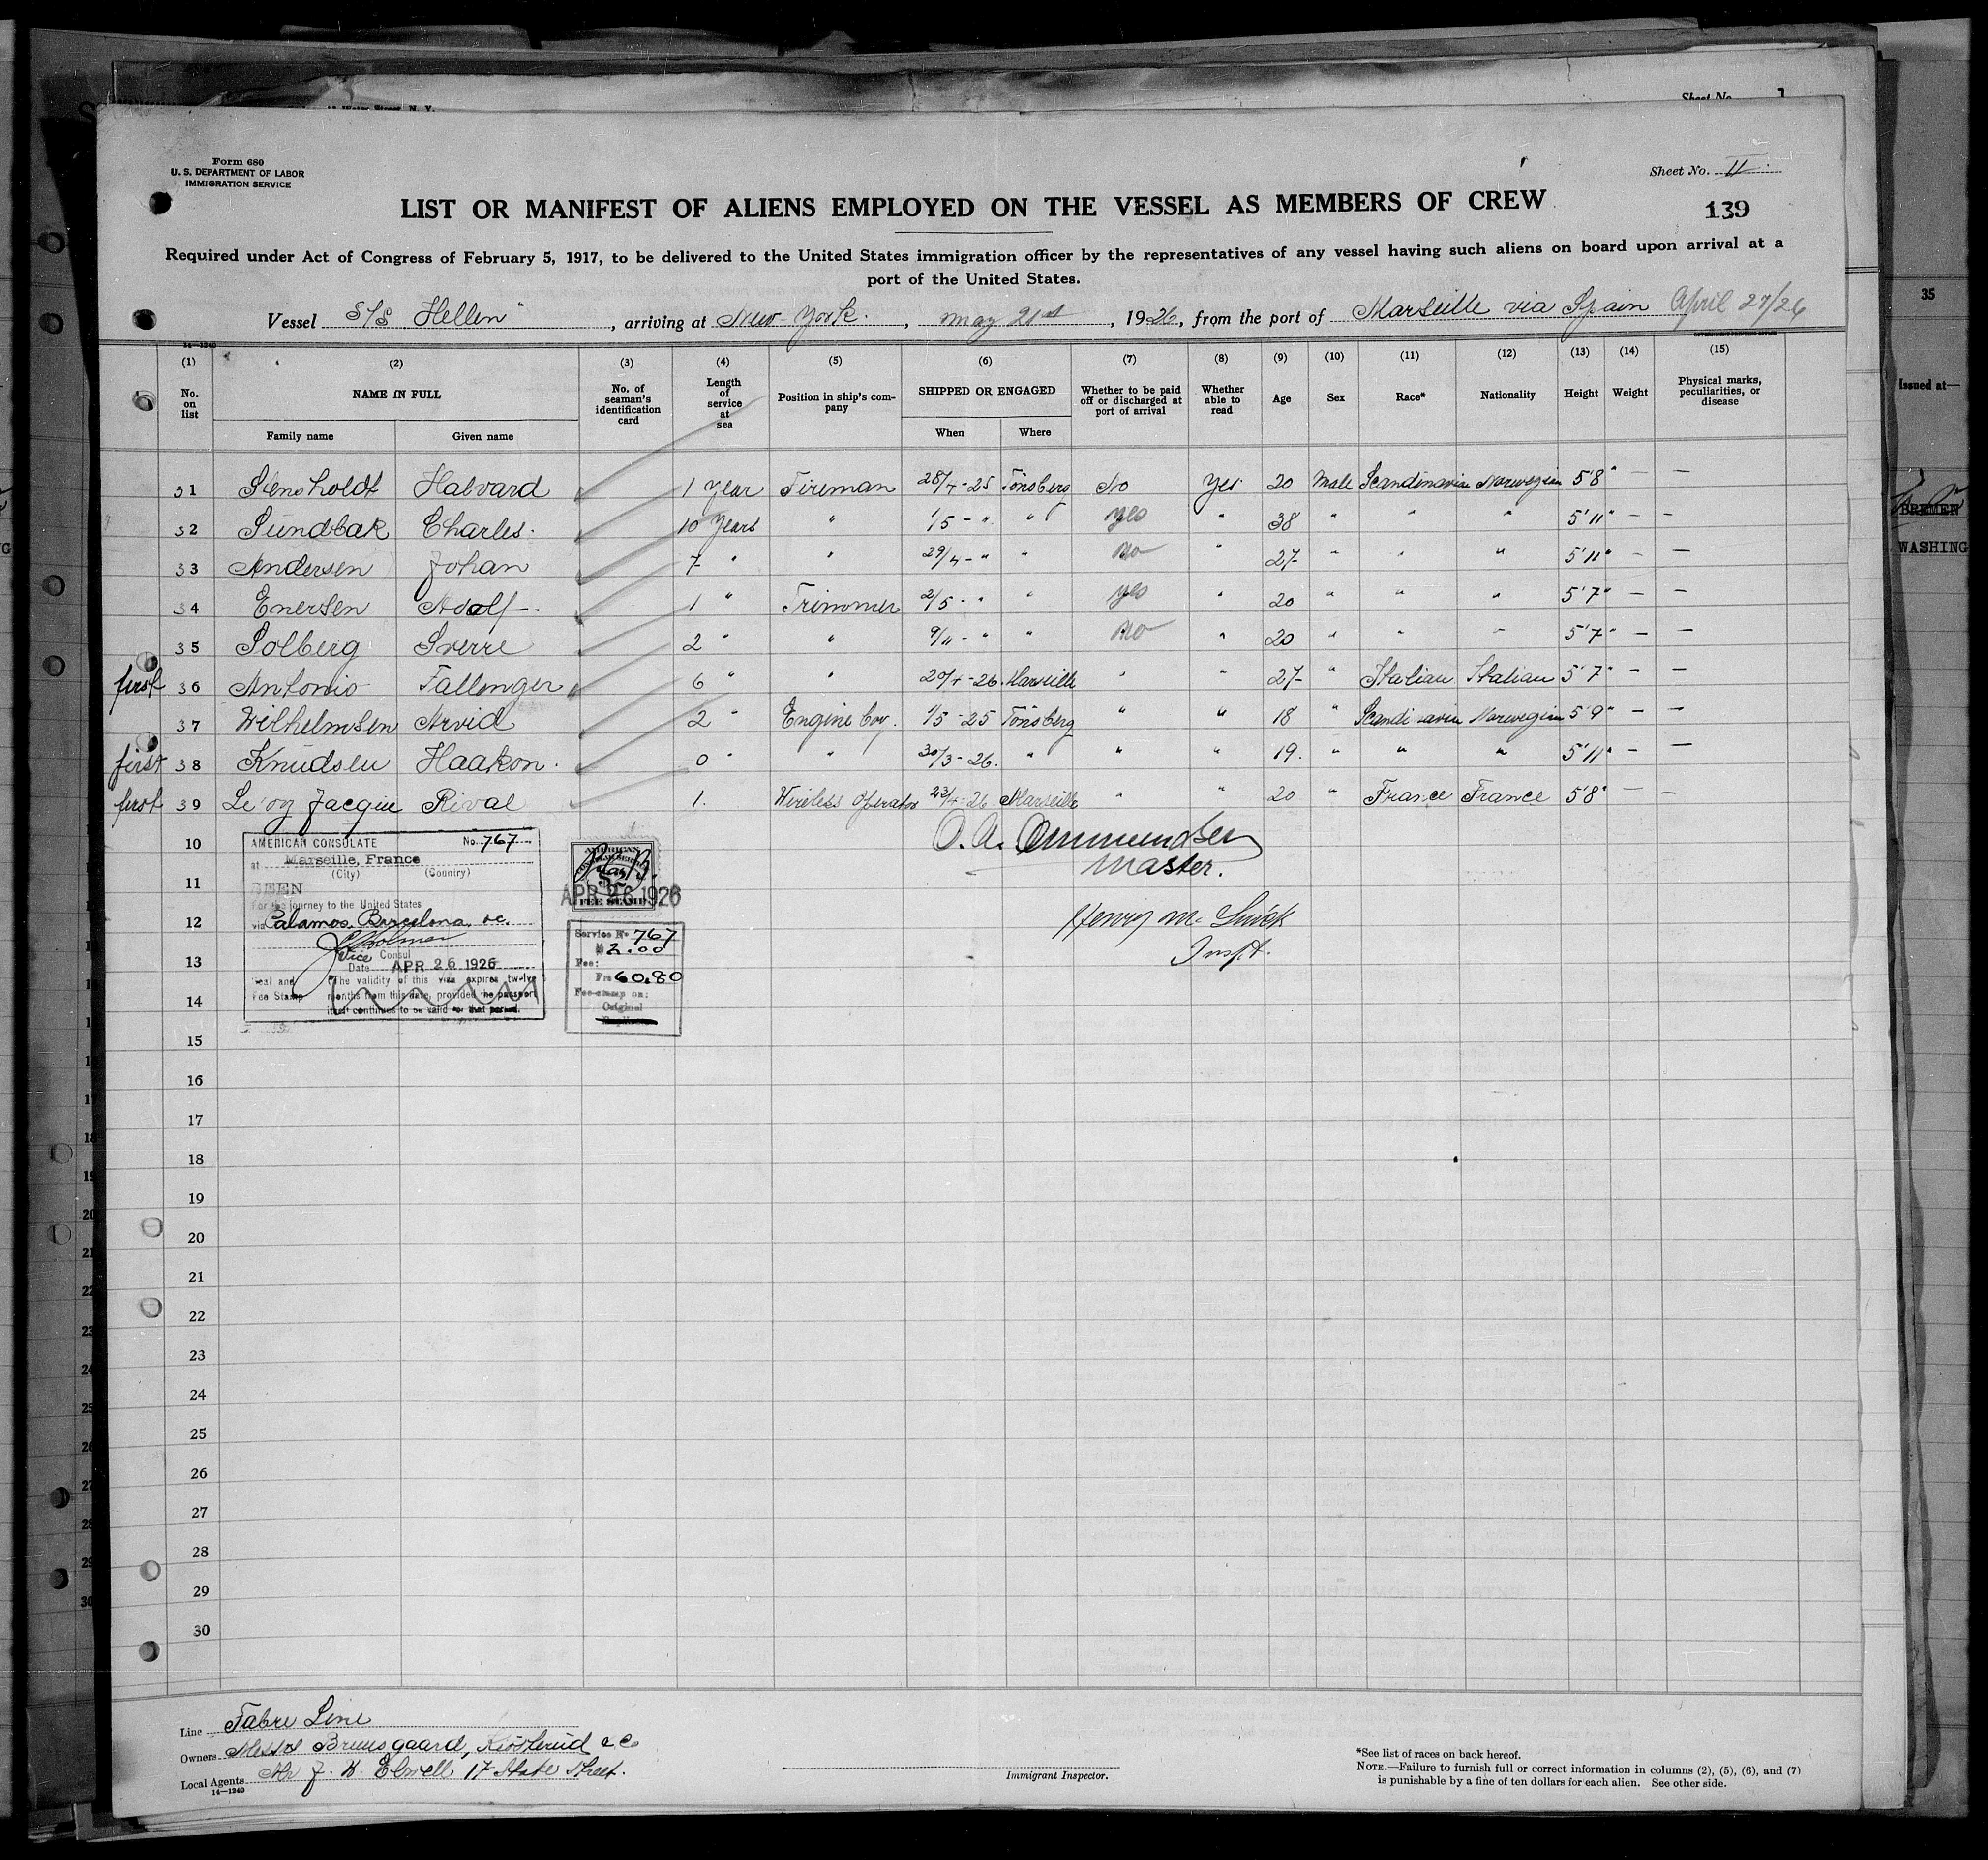 Sheet No. 1
Form 680
U. S. DEPARTMENT OF LABOR
IMMIGRATION SERVICE
Sheet No. II
LIST OR MANIFEST OF ALIENS EMPLOYED ON THE VESSEL AS MEMBERS OF CREW
139
Required under Act of Congress of February 5, 1917, to be delivered to the United States immigration officer by the representatives of any vessel having such aliens on board upon arrival at a
port of the United States.
Vessel S/S Hellen, arriving at New York, May 21st, 1926, from the port of Marseille via Spain April 27/26
14—1240
(1) (2) (3) (4) (5) (6) (7) (8) (9) (10) (11) (12) (13) (14) (15)
No. on list
NAME IN FULL
Family name Given name
No. of seaman's identification card
Length of service at sea
Position in ship's company
SHIPPED OR ENGAGED
When Where
Whether to be paid off or discharged at port of arrival
Whether able to read
Age
Sex
Race*
Nationality
Height
Weight
Physical marks, peculiarities, or disease
31 Stensholdt Halvard 1 year Fireman 28/4-25 Tönsberg No Yes 20 Male Scandinavia Norwegian 5'8" — —
32 Sundbak Charles. 10 years " 1/5 - " " yes " 38 " " " 5'11" — —
33 Andersen Johan 7 " " 29/4 - " " no " 27 " " " 5'11" — —
34 Enersen Adolf 1 " Trimmer 2/5 - " " yes " 20 " " " 5'7" — —
35 Solberg Sverre 2 " " 9/11 - " " no " 20 " " " 5'7" — —
first 36 Antonio Fallenger 6 " " 20/4-26. Marseille " " 27 " Italian Italian 5'7" — —
37 Wilhelmsen Arvid 2 " Engine boy. 1/5-25 Tönsberg " " 18 " Scandinavia Norwegian 5'9" — —
first 38 Knudsen Haakon. 0 " " 30/3-26. " " " 19. " " " 5'11" — —
first 39 Le'oy Jacque Rival 1. Wireless operator 23/4-26. Marseille " " 20 " France France 5'8" — —
10
11
12
13
14
15
16
17
18
19
20
21
22
23
24
25
26
27
28
29
30
AMERICAN CONSULATE No. 767
at Marseille, France
(City) (Country)
SEEN
For the journey to the United States
via Palamos, Barcelona, &c.
Vice Consul
Date APR 26 1926
Seal and Fee Stamp
"The validity of this visa expires twelve
months from this date, provided the passport
itself continues to be valid for that period.
AMERICAN
APR 26 1926
Service No 767
$ 2.00
Fee:
Frs 60.80
Fee-stamp on:
Original
O. A. Ammundsen
Master.
Inspt.
Line Fabre Line
Owners Messrs Bruusgaard, Kiösterud & Co
Local Agents Mr J. W. Elwell 17 State Street.
14—1240
Immigrant Inspector.
*See list of races on back hereof.
NOTE.—Failure to furnish full or correct information in columns (2), (5), (6), and (7)
is punishable by a fine of ten dollars for each alien. See other side.
35
Issued at—
BREMEN
WASHING